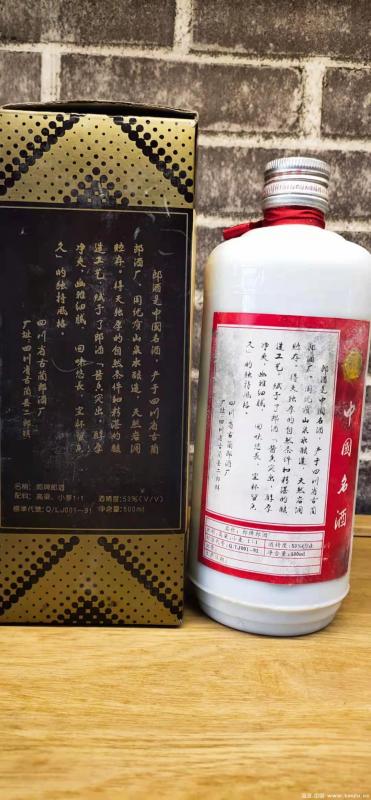 郎酒是中国名酒，产于四川省古蔺
郎酒厂。因优质山泉水酿造，天然岩洞
贮存，得天独厚的自然条件和精湛的酿
造工艺，赋予了郎酒“酱香突出，醇厚
净爽，幽雅细腻，回味悠长，空杯留香
久”的独特风格。
四川省古蔺郎酒厂
厂址四川省古蔺县二郎镇
名稱: 郎牌郎酒
配料: 高粱、小麥1:1 酒精度:53%(V/V)
標準代號: Q/LJ001-91 500ml
中国名酒
郎酒是中国名酒，产于四川省古蔺
郎酒厂。因优质山泉水酿造，天然岩洞
贮存，得天独厚的自然条件和精湛的酿
造工艺，赋予了郎酒“酱香突出，醇厚
净爽，幽雅细腻，回味悠长，空杯留香
久”的独特风格。
四川省古蔺郎酒厂
厂址四川省古蔺县二郎镇
名称: 郎牌郎酒
高粱、小麦 1:1 酒精度: 53%
Q/LJ001-91 净含量: 500ml